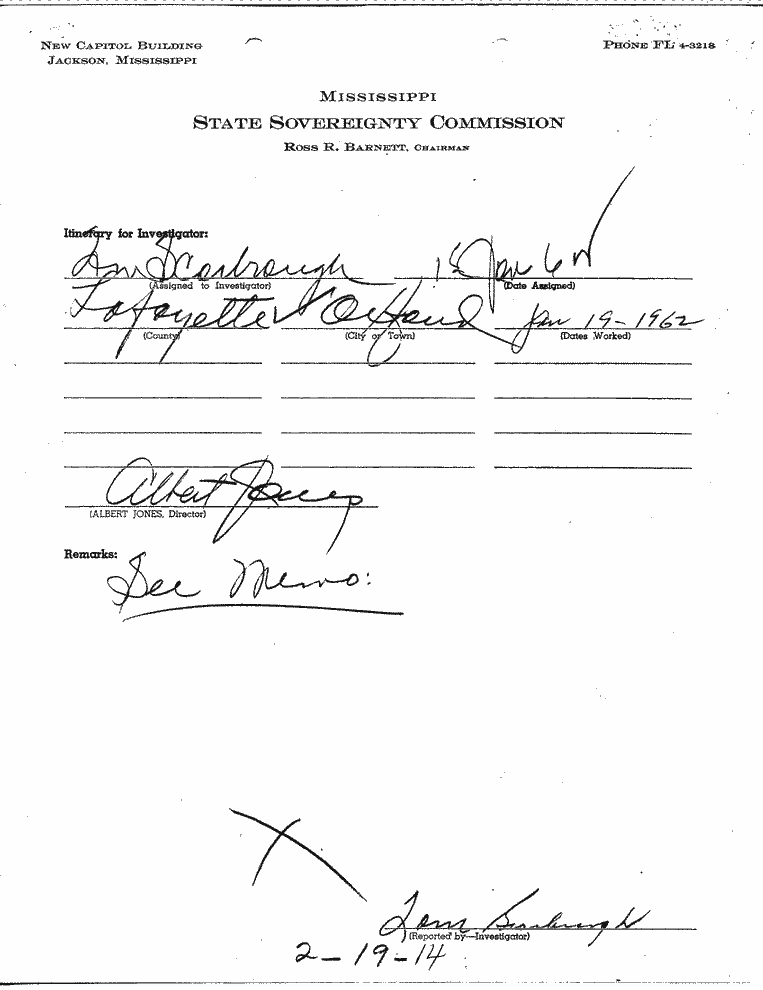 NEW CAPITOL BUILDING
JACKSON, MISSISSIPPI
PHONE FL 4-3218
MISSISSIPPI
STATE SOVEREIGNTY COMMISSION
ROSS R. BARNETT, CHAIRMAN
Itinerary for Investigator:
Tom Scarbrough 18 Jan 62
(Assigned to Investigator) (Date Assigned)
Lafayette Oxford Jan 19-1962
(County) (City or Town) (Dates Worked)
Albert Jones
(ALBERT JONES, Director)
Remarks:
See Memo:
Tom Scarbrough
(Reported by—Investigator)
2-19-14